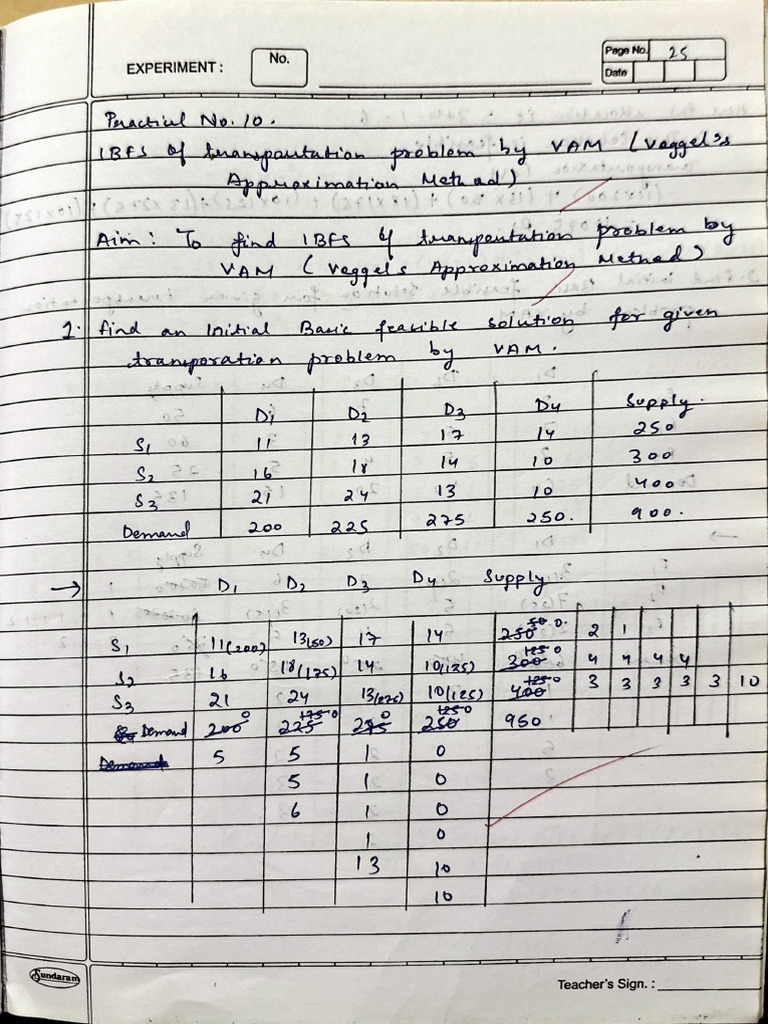 EXPERIMENT : No. Page No. 25
Date
Practical No. 10.
IBFS of transportation problem by VAM (Voggel's
Approximation Method)
Aim: To find IBFS of transportation problem by
VAM (Voggel's Approximation Method)
1. find an Initial Basic feasible solution for given
transporation problem by VAM.
D1 D2 D3 D4 Supply.
S1 11 13 17 14 250
S2 16 18 14 10 300
S3 21 24 13 10 400
Demand 200 225 275 250. 900.
→ D1 D2 D3 D4 Supply
S1 11(200) 13(50) 17 14 250 50 0. 2 1
S2 16 18(175) 14 10(125) 300 125 0 4 4 4 4
S3 21 24 13(275) 10(125) 400 125 0 3 3 3 3 3 10
Demand 200 0 225 175 0 275 0 250 125 0 950
Demand 5 5 1 0
5 1 0
6 1 0
1 0
13 10
10
Sundaram
Teacher's Sign. :